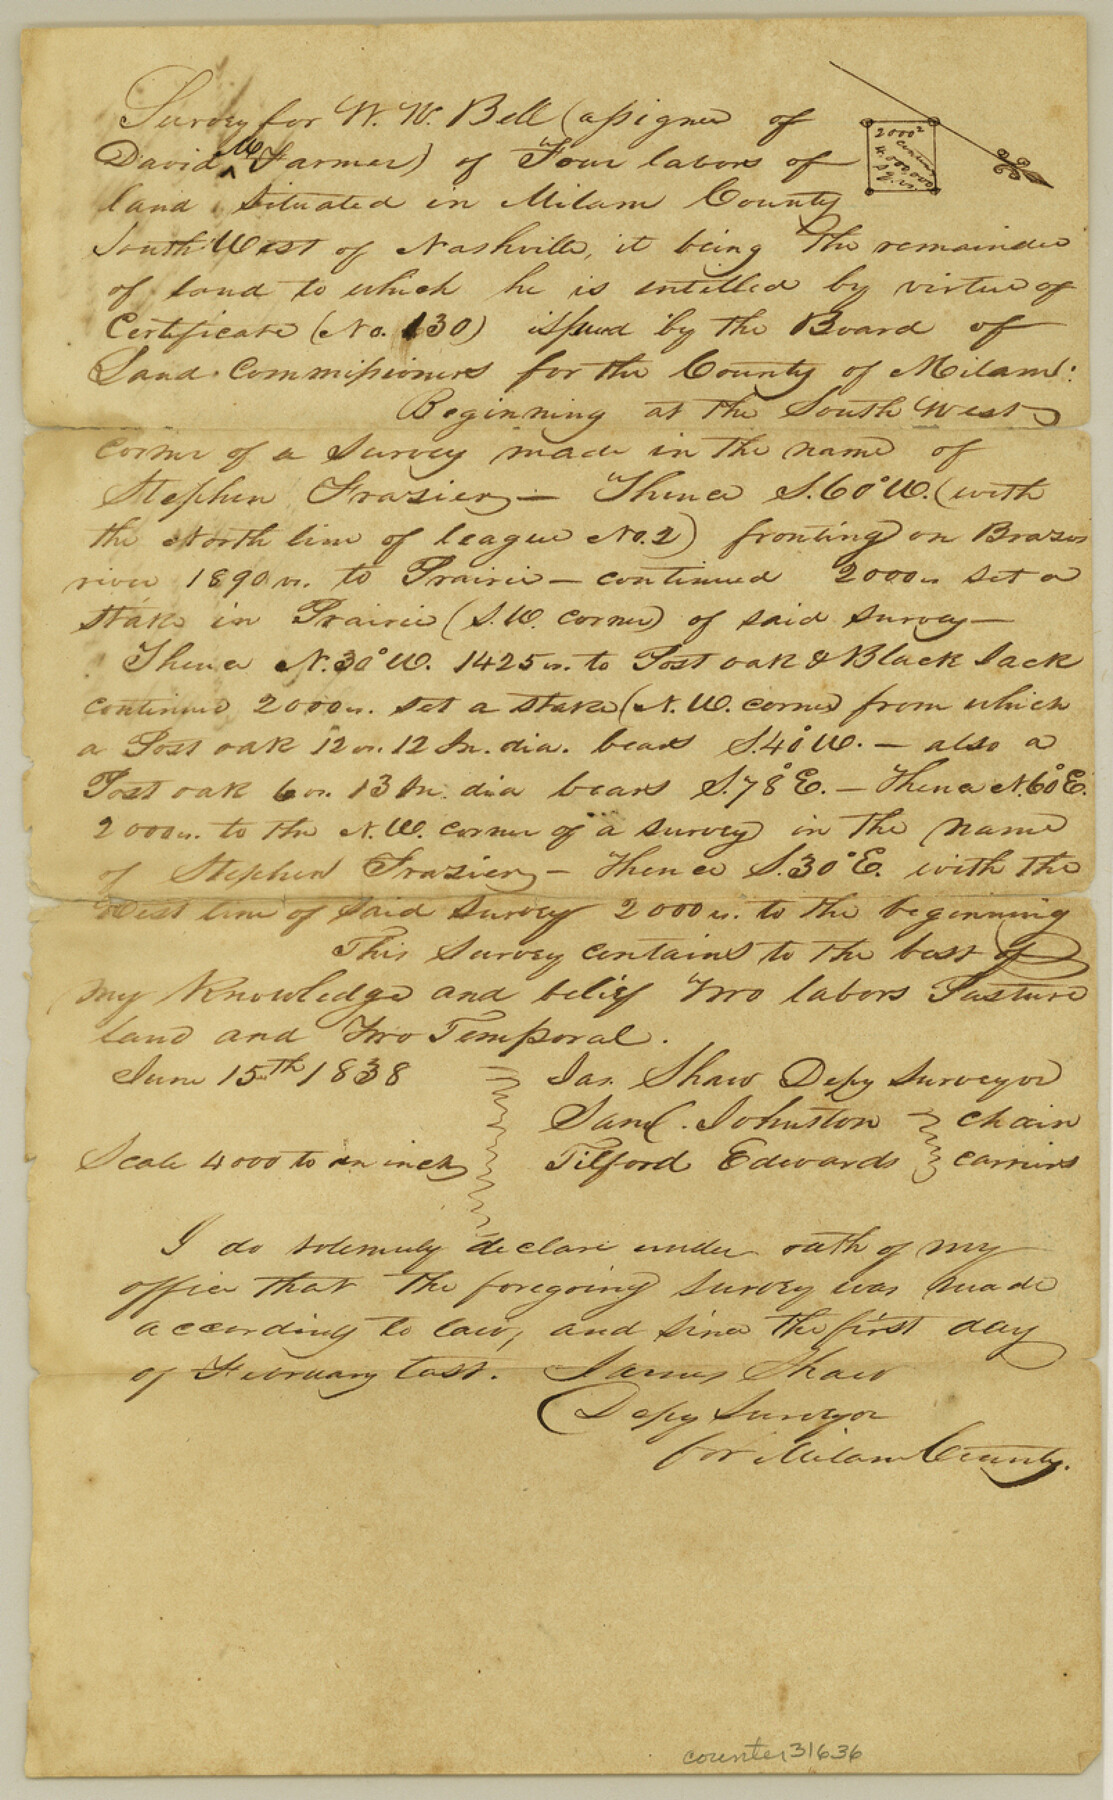 Survey for W. W. Bell (assignee of
David M Farmer) of Four labors of
land situated in Milam County
South West of Nashville, it being the remainder
of land to which he is intitled by virtue of
Certificate (No. 130) issued by the Board of
Land Commissioners for the County of Milam:
Beginning at the South West
corner of a survey made in the name of
Stephen Frazier,— Thence S.60°W. (with
the North line of league No. 2) fronting on Brazos
river 1890 vs. to Prairie — continued 2000 vs set a
stake in Prairie (S.W. corner) of said survey—
Thence N.30°W. 1425 vs. to Post oak & Black Jack
continue 2000 vs. set a stake (N.W. corner) from which
a Post oak 12 vs. 12 In. dia. bears S.40°W. — also a
Post oak 6 vs. 13 In. dia bears S.78°E. — Thence N.60°E.
2000 vs. to the N.W. corner of a survey in the name
of Stephen Frazier,— Thence S.30°E. with the
West line of said survey 2000 vs. to the beginning
This survey contains to the best of
my Knowledge and belief Two labors Pasture
land and Two Temporal.
June 15th 1838
Jas. Shaw Depy Surveyor
Saml. Johnston chain
Tilford Edwards carriers
Scale 4000 to an inch
I do solemnly declare under oath of my
office that the foregoing survey was made
according to law, and since the first day
of February last. James Shaw
Depy Surveyor
for Milam County.
2000²
4.000.000
sq. vs.
counter 31636